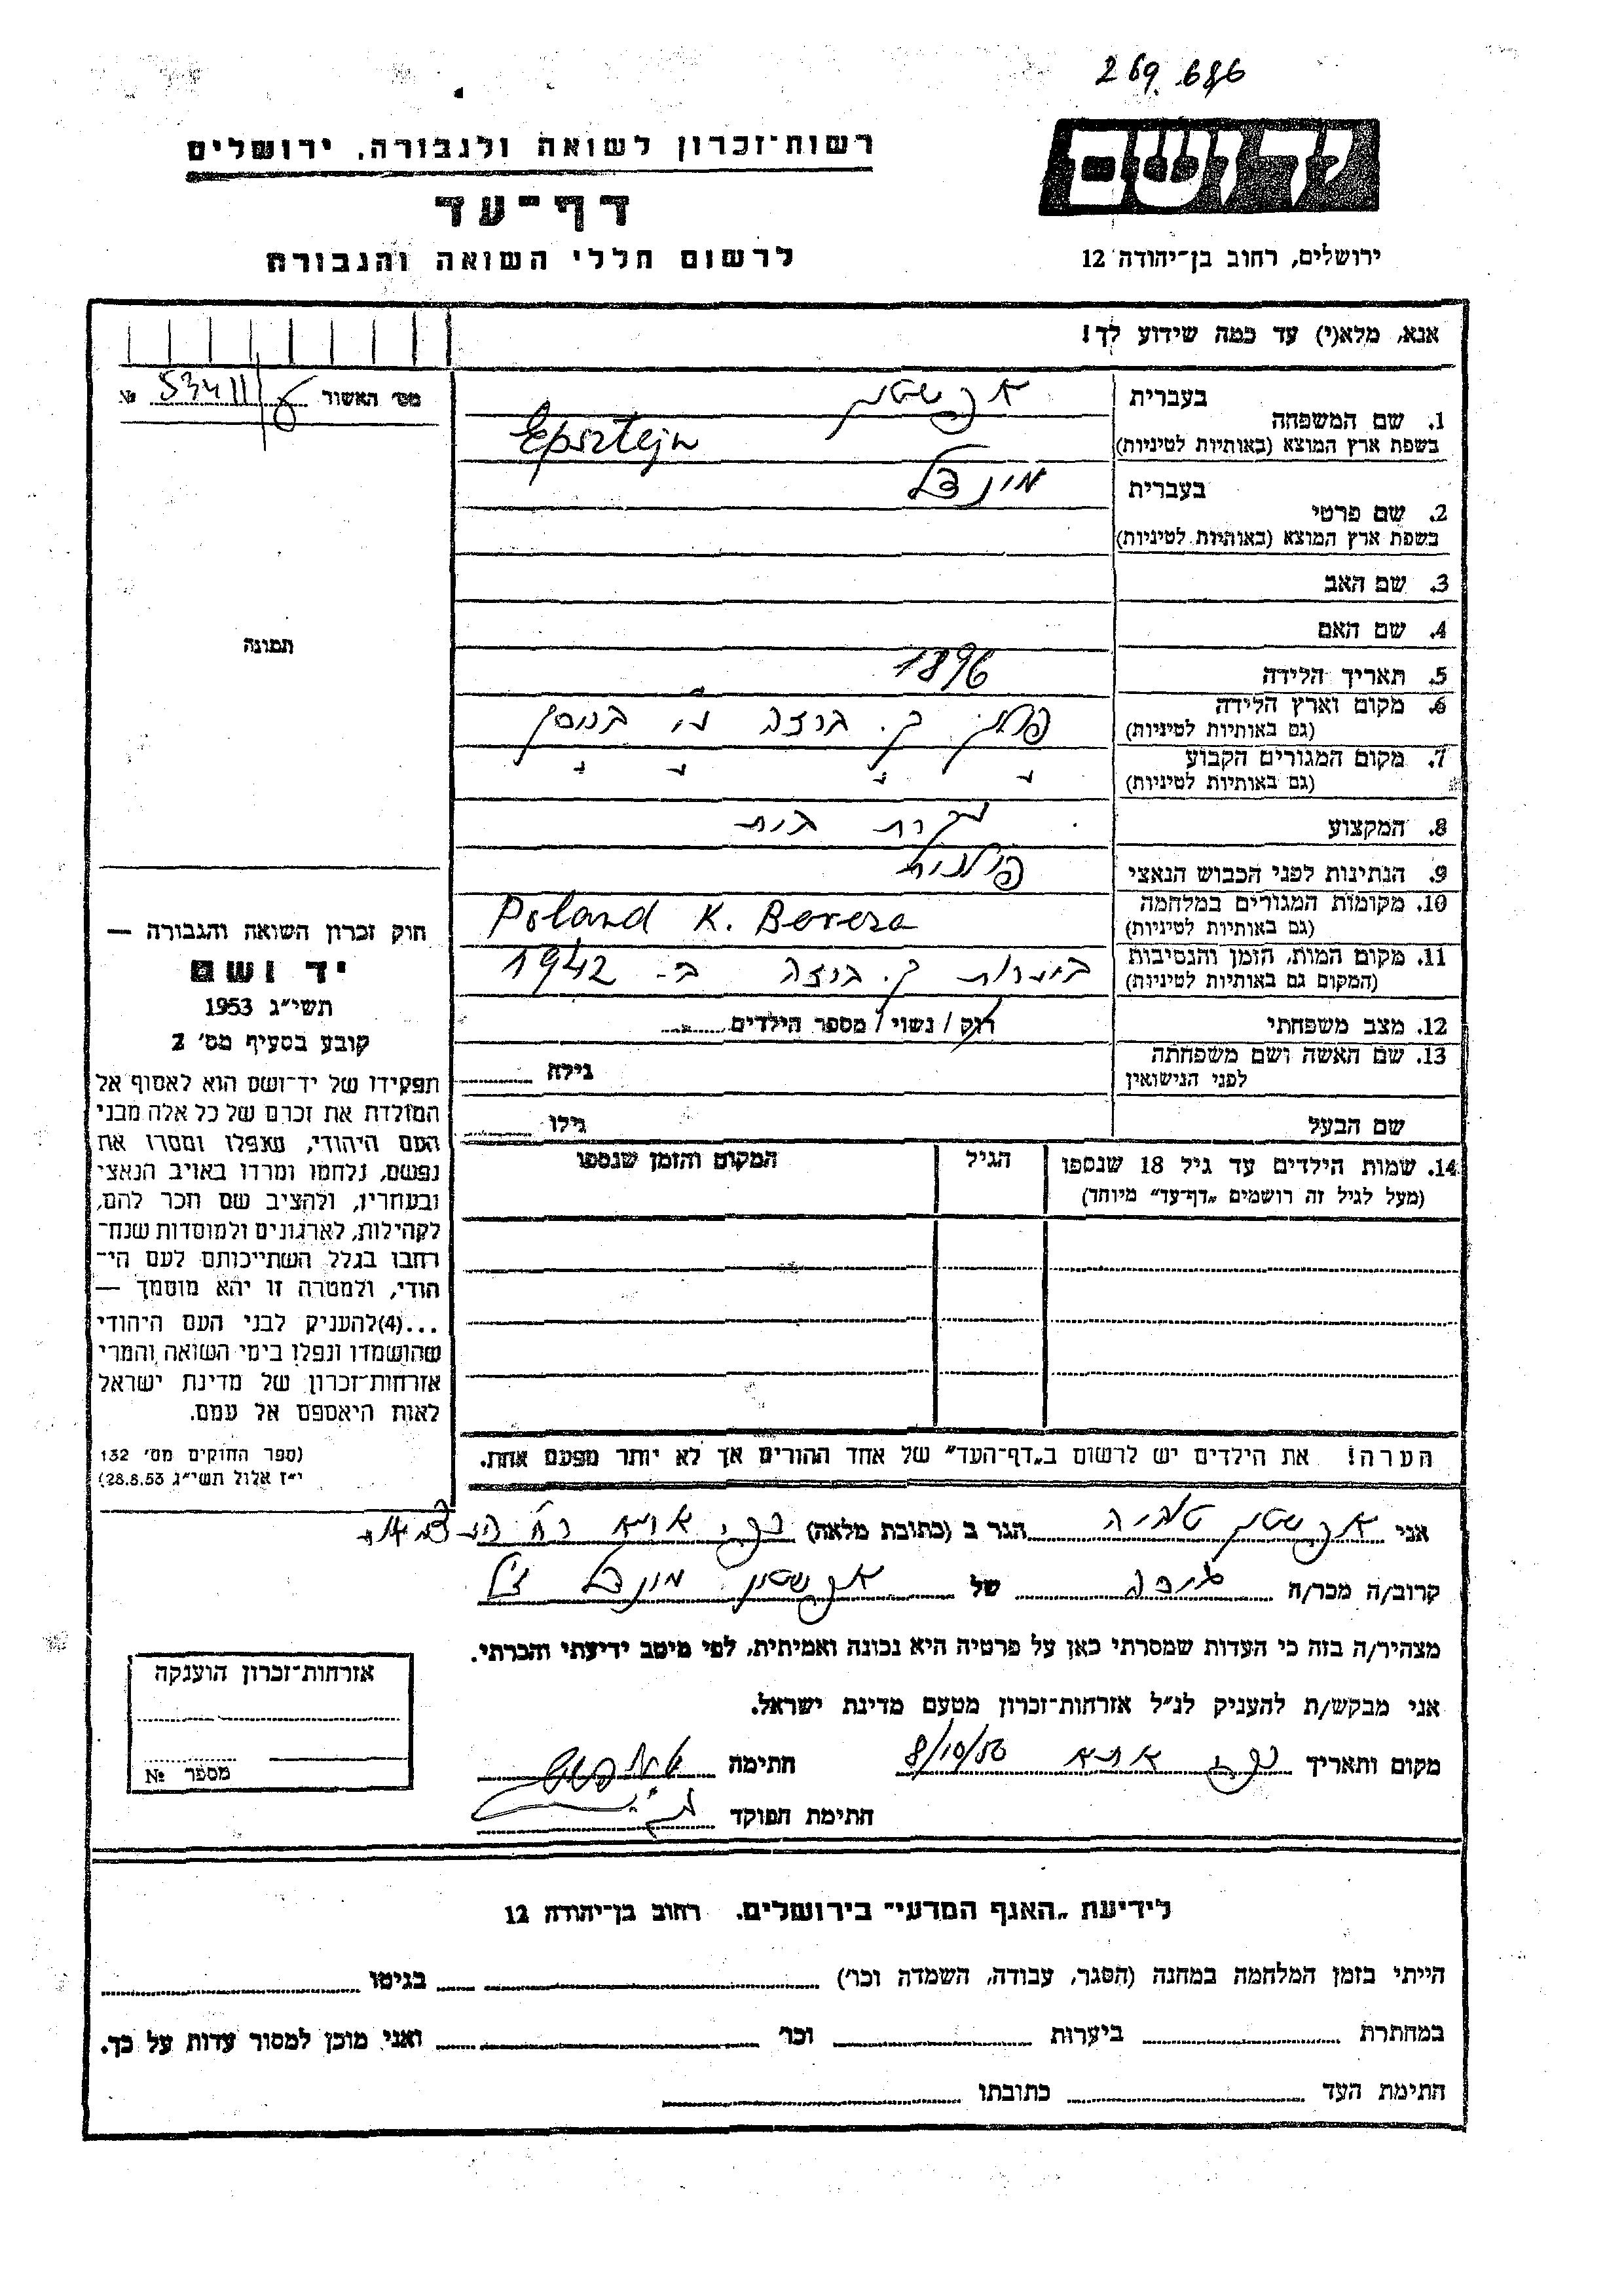 269.686
רשות־זכרון לשואה ולגבורה, ירושלים
דף־עד
לרשום חללי השואה והגבורה
יד ושם
ירושלים, רחוב בן־יהודה 12
אנא, מלא(י) עד כמה שידוע לך!
מס׳ האשור 53411/6 №
תמונה
1. שם המשפחה
בעברית אפשטין
בשפת ארץ המוצא (באותיות לטיניות) Epsztejn
2. שם פרטי
בעברית
בשפת ארץ המוצא (באותיות לטיניות)
3. שם האב
4. שם האם
5. תאריך הלידה 1896
6. מקום וארץ הלידה פולין ק. ברזה
(גם באותיות לטיניות)
7. מקום המגורים הקבוע " " " "
(גם באותיות לטיניות)
8. המקצוע עקרת בית
9. הנתינות לפני הכבוש הנאצי פולנית
10. מקומות המגורים במלחמה Poland K. Bereza
(גם באותיות לטיניות)
11. מקום המות, הזמן והנסיבות ביערות ק. ברזה ב- 1942
(המקום גם באותיות לטיניות)
12. מצב משפחתי רוק / נשוי / מספר הילדים
13. שם האשה ושם משפחתה
לפני הנישואין
גילה
שם הבעל גילו
14. שמות הילדים עד גיל 18 שנספו הגיל המקום והזמן שנספו
(מעל לגיל זה רושמים „דף־עד״ מיוחד)
הערה! את הילדים יש לרשום ב„דף־העד״ של אחד ההורים אך לא יותר מפעם אחת.
חוק זכרון השואה והגבורה —
יד ושם
תשי״ג 1953
קובע בסעיף מס׳ 2
תפקידו של יד־ושם הוא לאסוף אל
המולדת את זכרם של כל אלה מבני
העם היהודי, שנפלו ומסרו את
נפשם, נלחמו ומרדו באויב הנאצי
ובעוזריו, ולהציב שם וזכר להם,
לקהילות, לארגונים ולמוסדות שנח־
רבו בגלל השתייכותם לעם הי־
הודי, ולמטרה זו יהא מוסמך —
...(4)להעניק לבני העם היהודי
שהושמדו ונפלו בימי השואה והמרי
אזרחות־זכרון של מדינת ישראל
לאות היאספם אל עמם.
(ספר החוקים מס׳ 132
י״ז אלול תשי״ג 28.8.53)
אני אפשטין הגר ב (כתובת מלאה)
קרוב/ה מכר/ה של אפשטין ז״ל
מצהיר/ה בזה כי העדות שמסרתי כאן על פרטיה היא נכונה ואמיתית, לפי מיטב ידיעתי והכרתי.
אני מבקש/ת להעניק לנ״ל אזרחות־זכרון מטעם מדינת ישראל.
מקום ותאריך 8/10/56 חתימה
חתימת הפוקד
אזרחות־זכרון הוענקה
מספר №
לידיעת „האגף המדעי״ בירושלים, רחוב בן־יהודה 12
הייתי בזמן המלחמה במחנה (הסגר, עבודה, השמדה וכו׳) בגיטו
במחתרת ביערות וכו׳ ואני מוכן למסור עדות על כך.
חתימת העד כתובתו